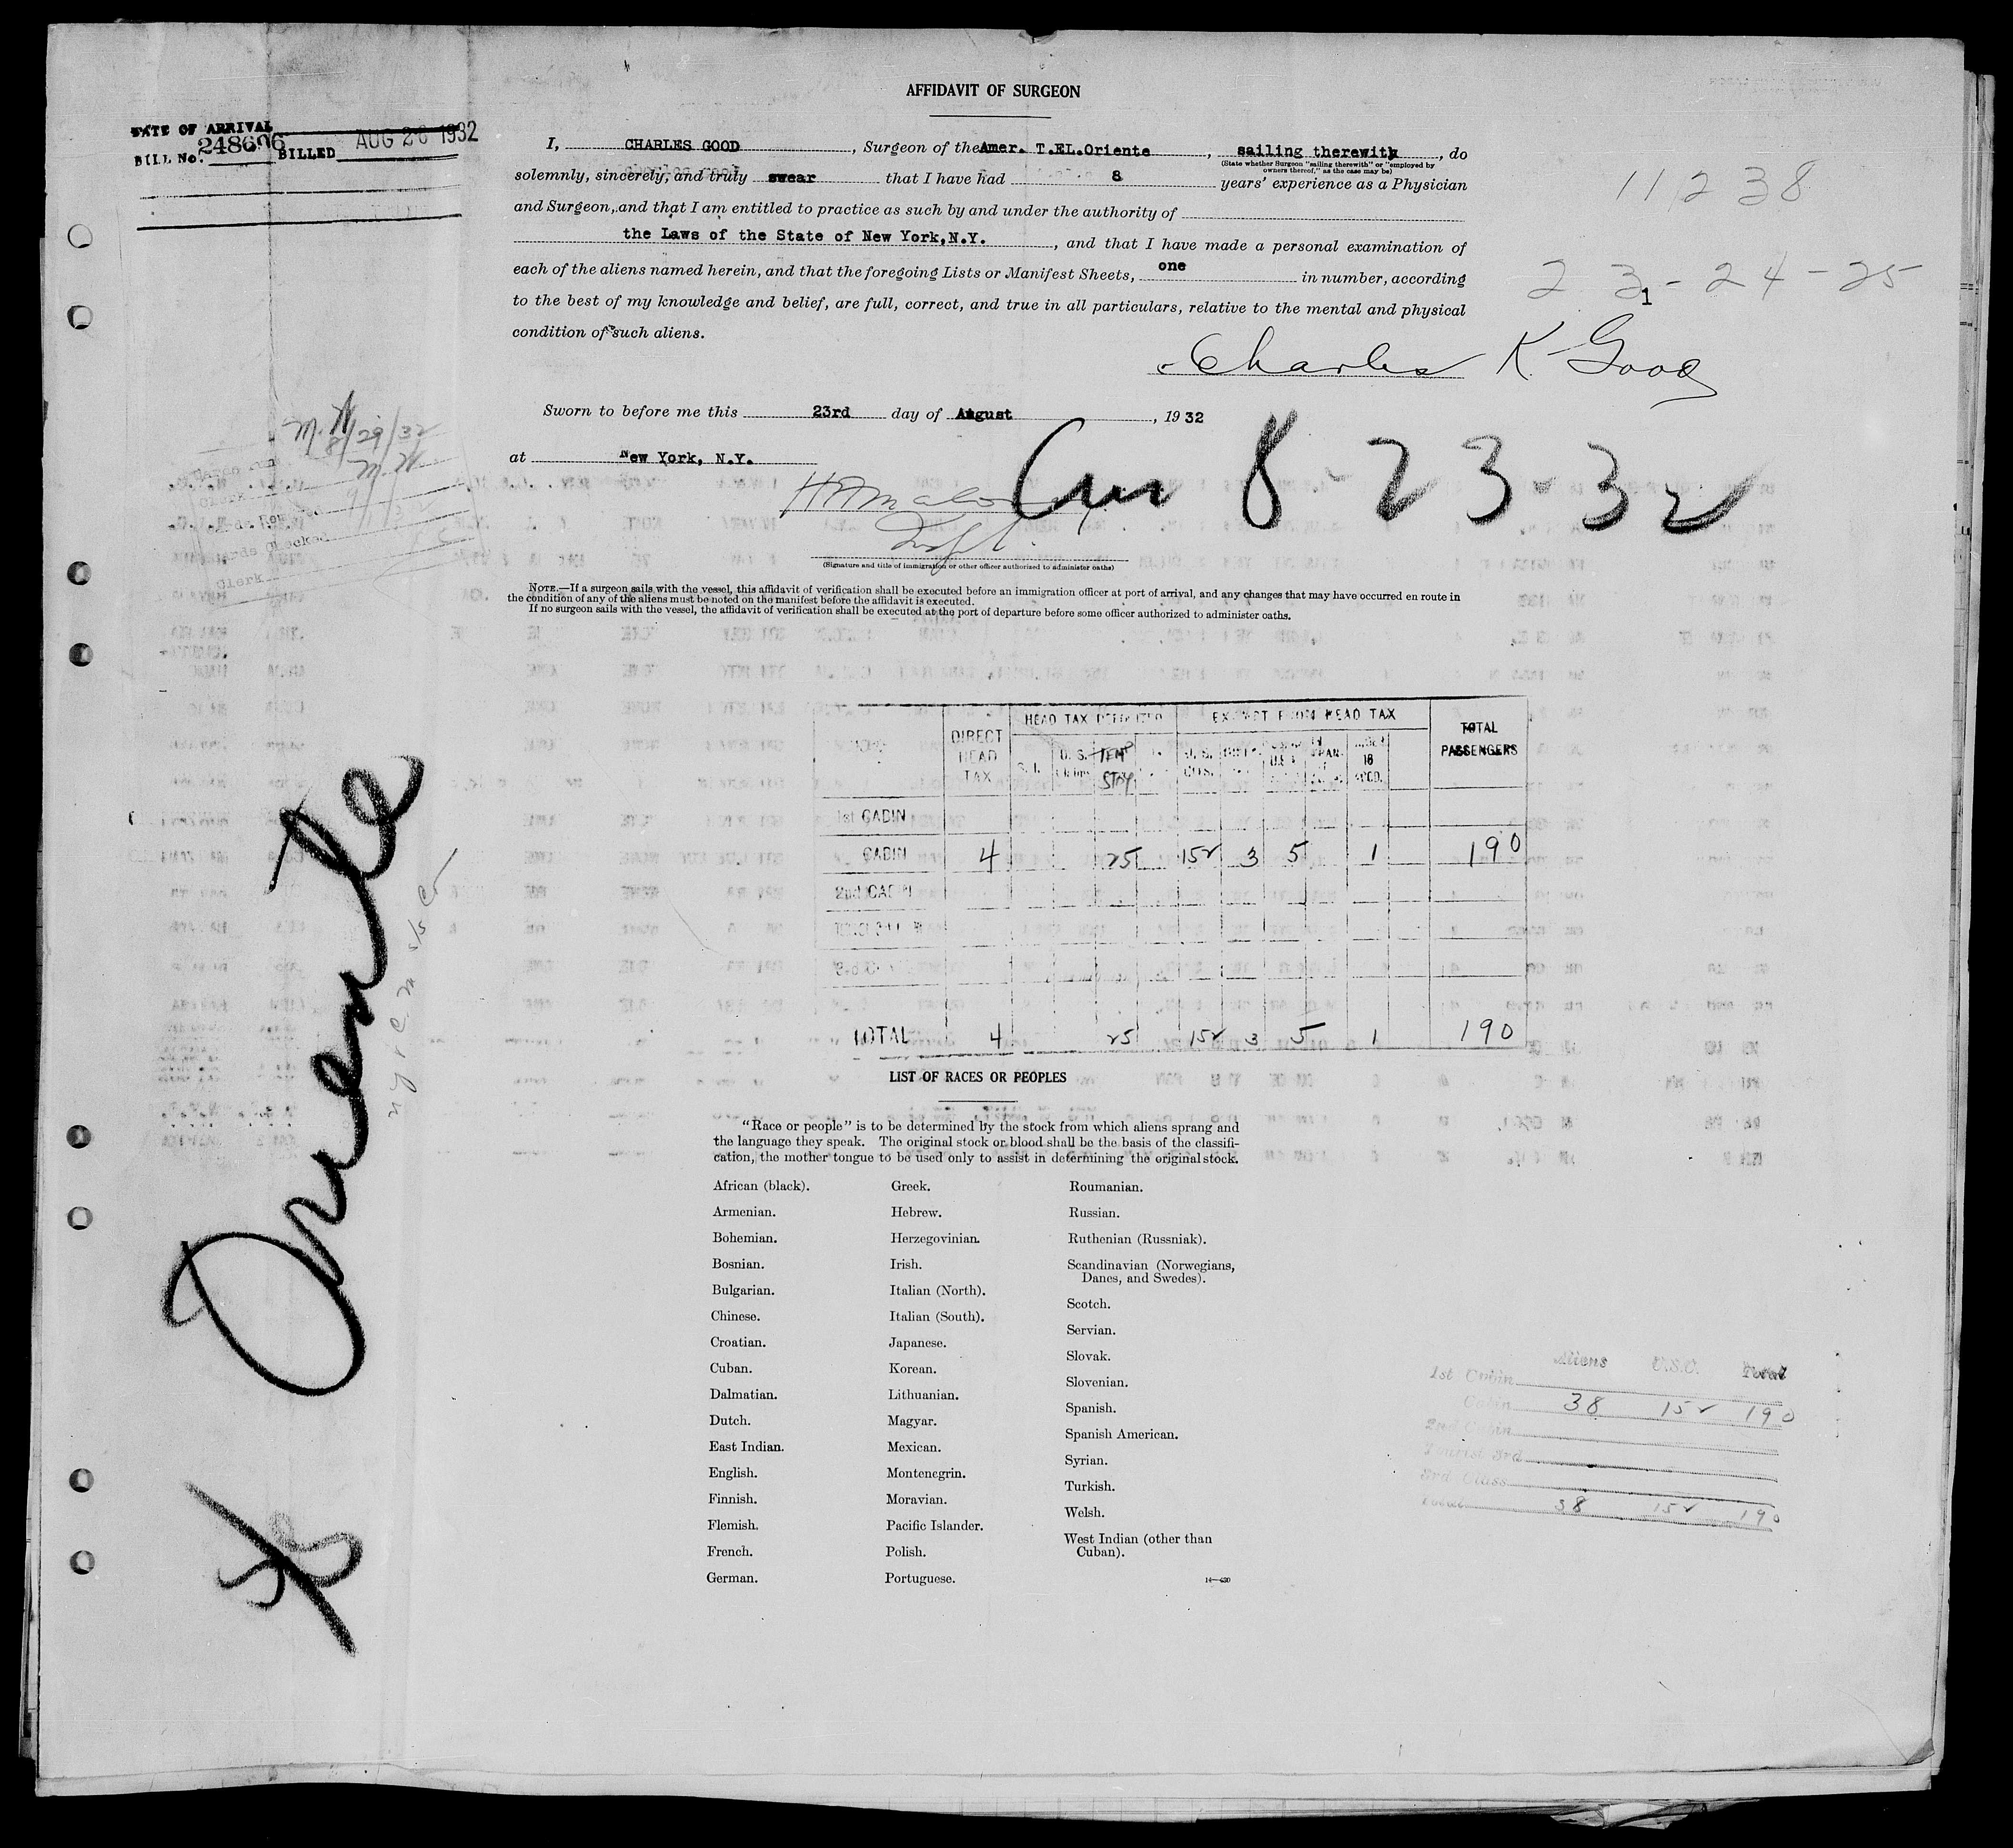 AFFIDAVIT OF SURGEON
DATE OF ARRIVAL
BILL No. 248606 BILLED AUG 26 1932
I, CHARLES GOOD, Surgeon of the Amer. T.EL.Oriente, sailing therewith, do
(State whether Surgeon "sailing therewith" or "employed by
owners thereof," as the case may be)
solemnly, sincerely, and truly swear that I have had 8 years' experience as a Physician
and Surgeon, and that I am entitled to practice as such by and under the authority of
the Laws of the State of New York, N.Y., and that I have made a personal examination of
each of the aliens named herein, and that the foregoing Lists or Manifest Sheets, one in number, according
to the best of my knowledge and belief, are full, correct, and true in all particulars, relative to the mental and physical
condition of such aliens.
11238
23-24-25
1
Charles K. Good
Sworn to before me this 23rd day of August, 1932
at New York, N.Y.
8-23-32
Inspt.
(Signature and title of immigration or other officer authorized to administer oaths)
M.H.
8/29/32
M.H.
Clerk
Clerk
NOTE.—If a surgeon sails with the vessel, this affidavit of verification shall be executed before an immigration officer at port of arrival, and any changes that may have occurred en route in
the condition of any of the aliens must be noted on the manifest before the affidavit is executed.
If no surgeon sails with the vessel, the affidavit of verification shall be executed at the port of departure before some officer authorized to administer oaths.
DIRECT HEAD TAX HEAD TAX EXEMPT FROM HEAD TAX TOTAL PASSENGERS
S. I. U. S. TEMP STAY U. S. CITS. 16 ACCO.
1st CABIN
CABIN 4 25 152 3 5 1 190
2nd CABIN
TOTAL 4 25 152 3 5 1 190
Oriente
LIST OF RACES OR PEOPLES
"Race or people" is to be determined by the stock from which aliens sprang and
the language they speak. The original stock or blood shall be the basis of the classifi-
cation, the mother tongue to be used only to assist in determining the original stock.
African (black).
Armenian.
Bohemian.
Bosnian.
Bulgarian.
Chinese.
Croatian.
Cuban.
Dalmatian.
Dutch.
East Indian.
English.
Finnish.
Flemish.
French.
German.
Greek.
Hebrew.
Herzegovinian.
Irish.
Italian (North).
Italian (South).
Japanese.
Korean.
Lithuanian.
Magyar.
Mexican.
Montenegrin.
Moravian.
Pacific Islander.
Polish.
Portuguese.
Roumanian.
Russian.
Ruthenian (Russniak).
Scandinavian (Norwegians,
Danes, and Swedes).
Scotch.
Servian.
Slovak.
Slovenian.
Spanish.
Spanish American.
Syrian.
Turkish.
Welsh.
West Indian (other than
Cuban).
Aliens U.S.C. Total
1st Cabin
Cabin 38 152 190
2nd Cabin
Tourist 3rd
3rd Class
Total 38 152 190